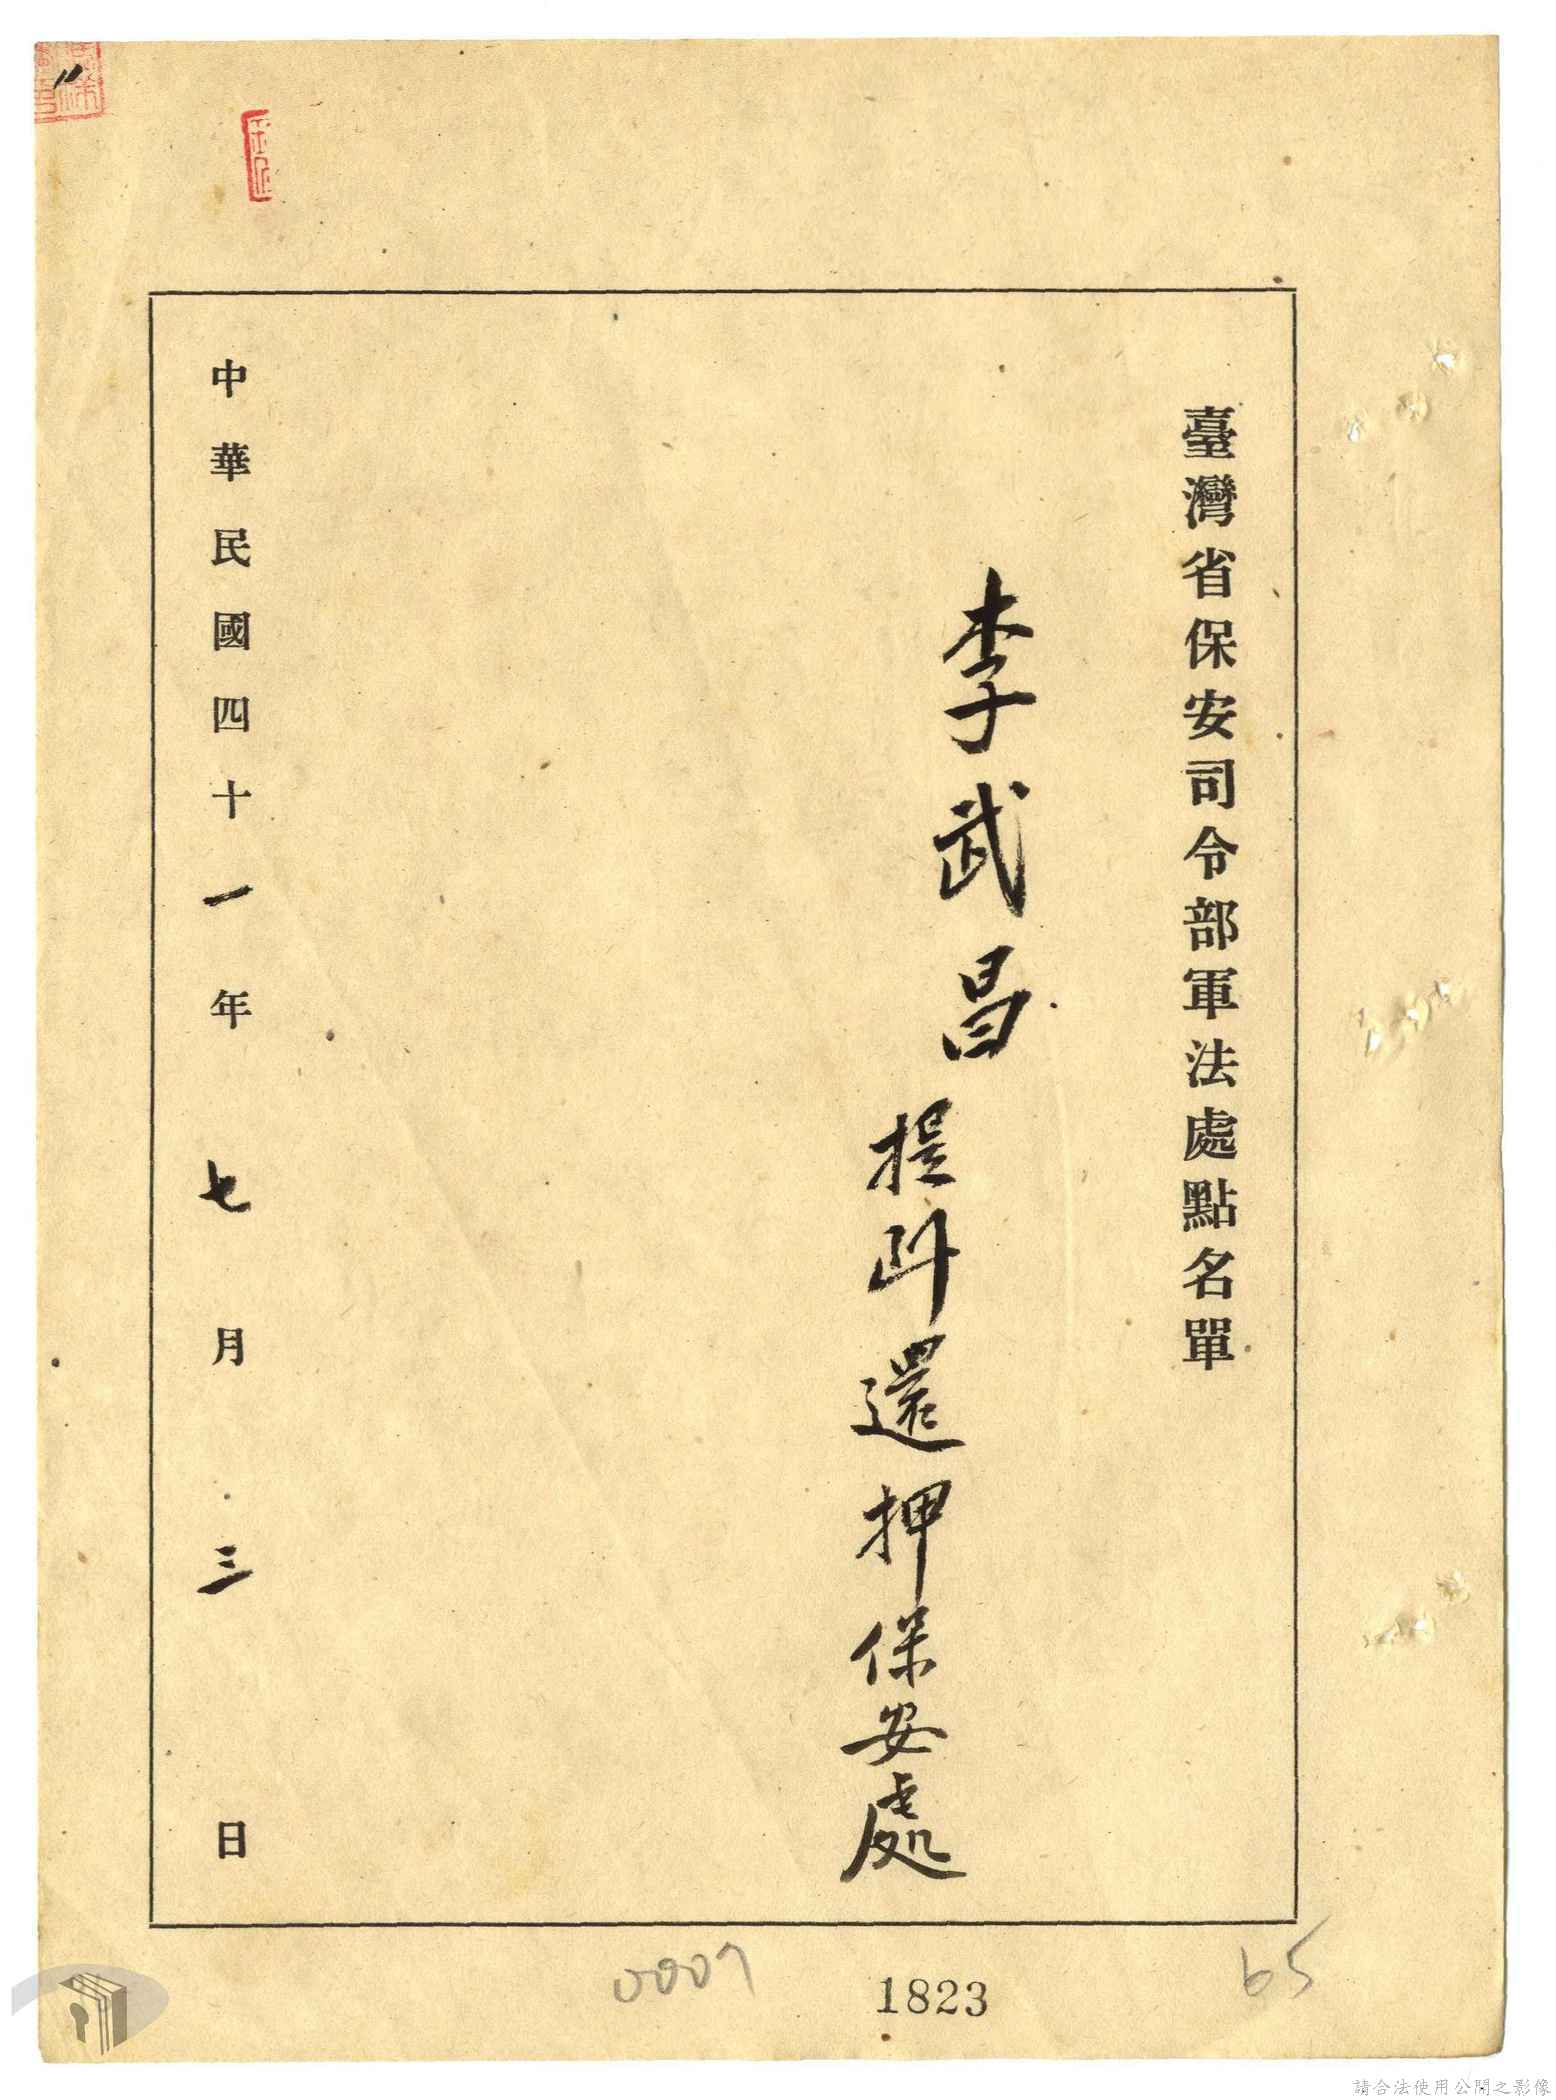 臺灣省保安司令部軍法處點名單
李武昌
提訊還押保安處
中華民國四十一年七月三日
0007
1823
65
請合法使用公開之影像